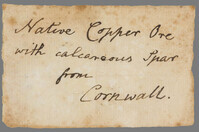 Native Copper Ore
with calcareous Spar
from
Cornwall.